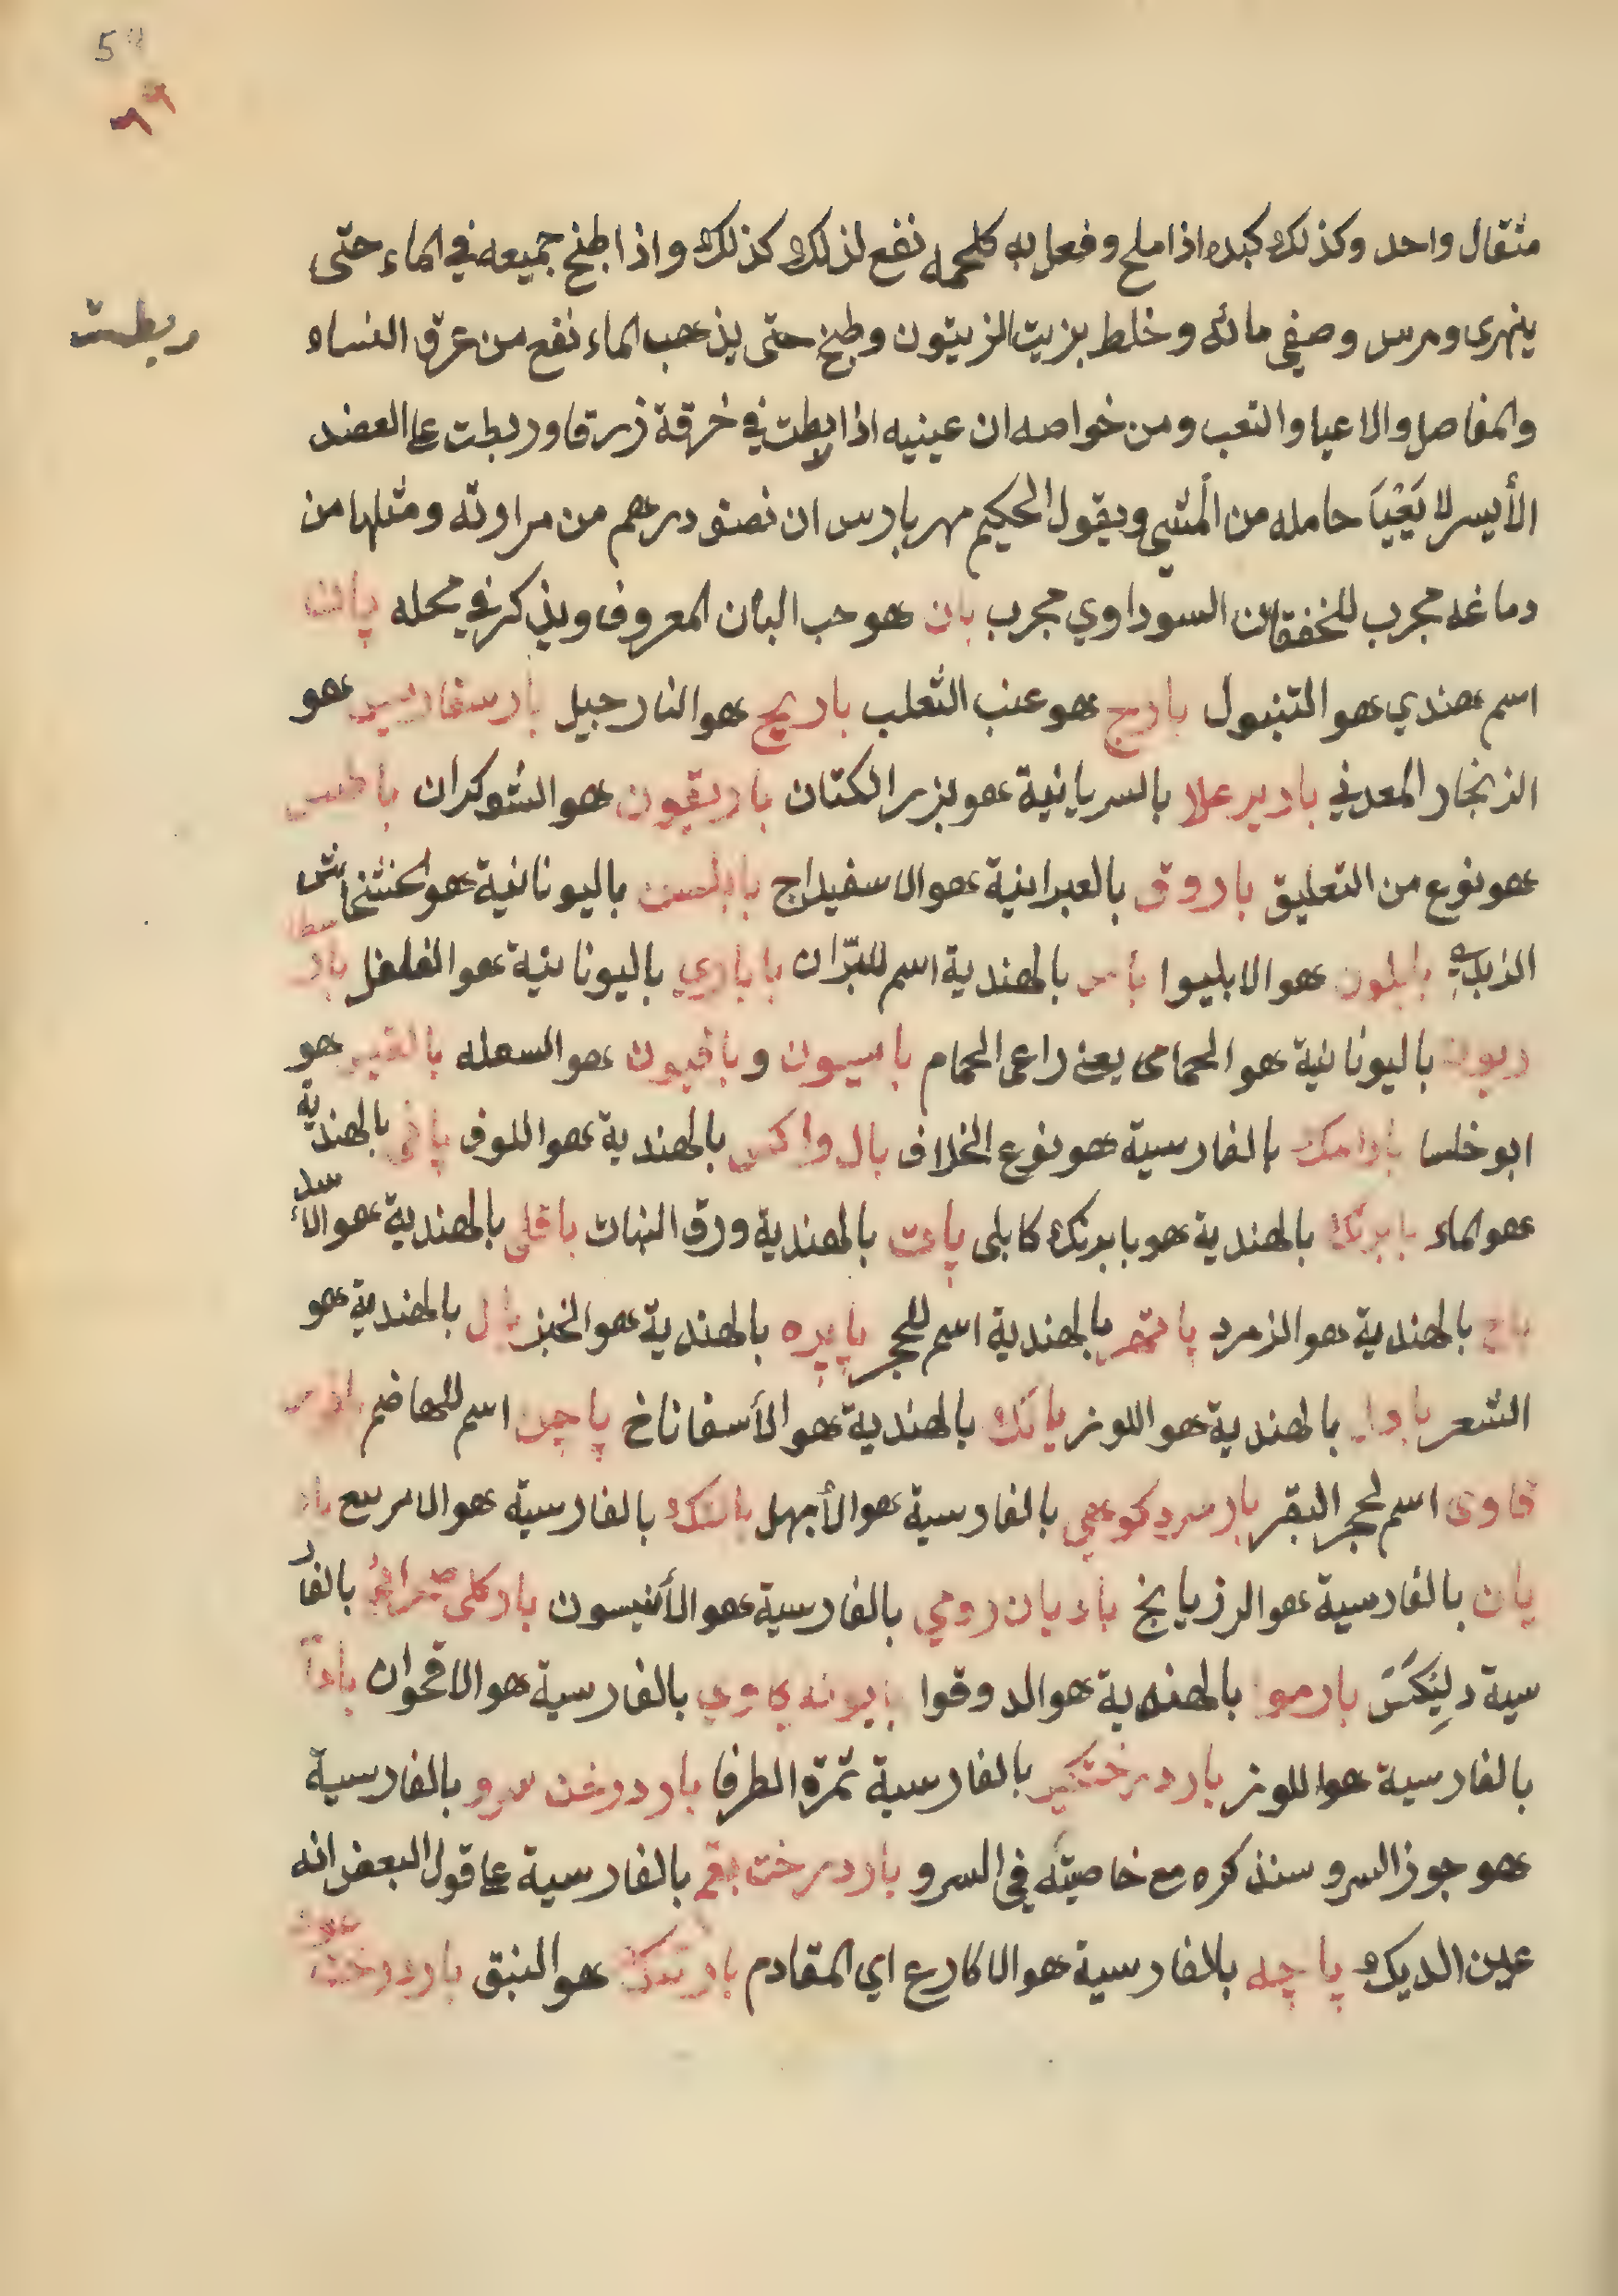 مثقال واحد وكذلك كبده اذا ملح وفعل به كلحمه نفع لذلك كذلك واذا طبخ جميعه في الماء حتى
ينهرى ومرس وصفي مائه وخلط بزيت الزيتون وطبخ حتى يذهب الماء نفع من عرق النساء
ربطت
والمفاصل والاعيا والتعب ومن خواصه ان عينيه اذا ربطت في خرقة زرقا وربطت على العضد
الأيسر لا يَعْيَا حامله من المشي ويقول الحكيم مهربارس ان نصف درهم من مرارته ومثلها من
دماغه مجرب للخفقان السوداوي مجرب بان هو حب البان المعروف ويذكر في محله پان
اسم هندي هو التنبول بارج هو عنب الثعلب باريج هو النارجيل هو
الزنجار المعدني باديرعلا بالسريانية هو بزر الكتان باريقون هو الشوكران
هو نوع من التعليق باروق بالعبرانية هو الاسفيداج بابلس باليونانية هو الخشخاش
الزبدي بابلون هو الابليوا بالهندية اسم للبزان باباري باليونانية هو الفلفل
باليونانية هو الحمامى يعنى راعى الحمام باسيون وبافيون هو السعله هو
ابوخلسا بادامك بالفارسية هو نوع الخلاف بالهندية هو اللوف پاني بالهندية
هو الماء بابرنك بالهندية هو بابرنك كابلى پات بالهندية ورق النبات بالهندية هو الاسد
بالهندية هو الزمرد پاتهر بالهندية اسم للحجر پاپره بالهندية هو الخبز بال بالهندية هو
الشعر بادام بالهندية هو اللوز پانك بالهندية هو الأسفاناخ پاچن اسم للهاضم
قاوى اسم لحجر البقر بارسرو كوهي بالفارسية هو الأبهل بالفارسية هو الامريع باد
يان بالفارسية هو الرزيانج باديان رومي بالفارسية هو الأنيسون بالفار
سية بالهندية هو الدوقوا بابونه گاوي بالفارسية هو الاقحوان بادام
بالفارسية هو اللوز بار درخت بالفارسية ثمرة الطرفا بار درخت سرو بالفارسية
هو جوز السرو سنذكره مع خاصيته في السرو بار درخت بقم بالفارسية على قول البعض انه
عين الديك پاچه بالفارسية هو الاكارع اي المقادم هو النبق بار درخت